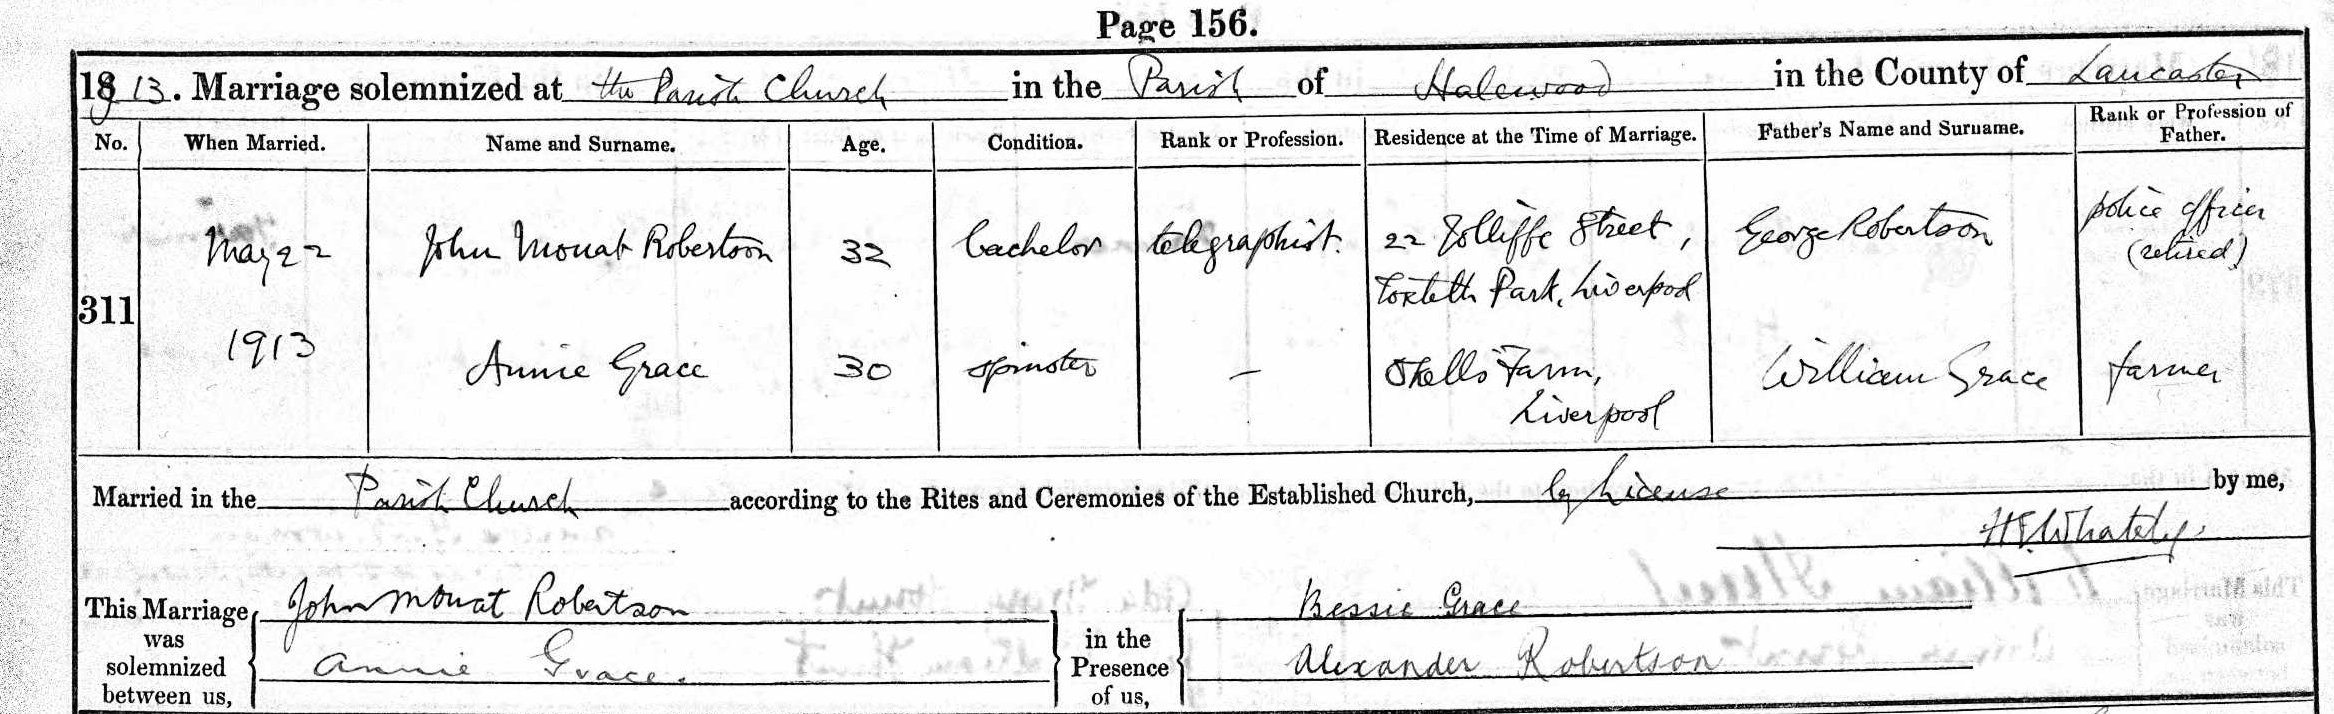 Page 156.
1913. Marriage solemnized at the Parish Church in the Parish of Halewood in the County of Lancaster
No. When Married. Name and Surname. Age. Condition. Rank or Profession. Residence at the Time of Marriage. Father's Name and Surname. Rank or Profession of Father.
311
May 22 John Mouat Robertson 32 bachelor telegraphist. 22 Jolliffe Street, George Robertson police officer
Toxteth Park, Liverpool (retired)
1913 Annie Grace 30 spinster — Farm, William Grace farmer
Liverpool
Married in the Parish Church according to the Rites and Ceremonies of the Established Church, by License by me,
Whately.
This Marriage was solemnized between us, John Mouat Robertson in the Presence of us, Bessie Grace
Annie Grace. Alexander Robertson